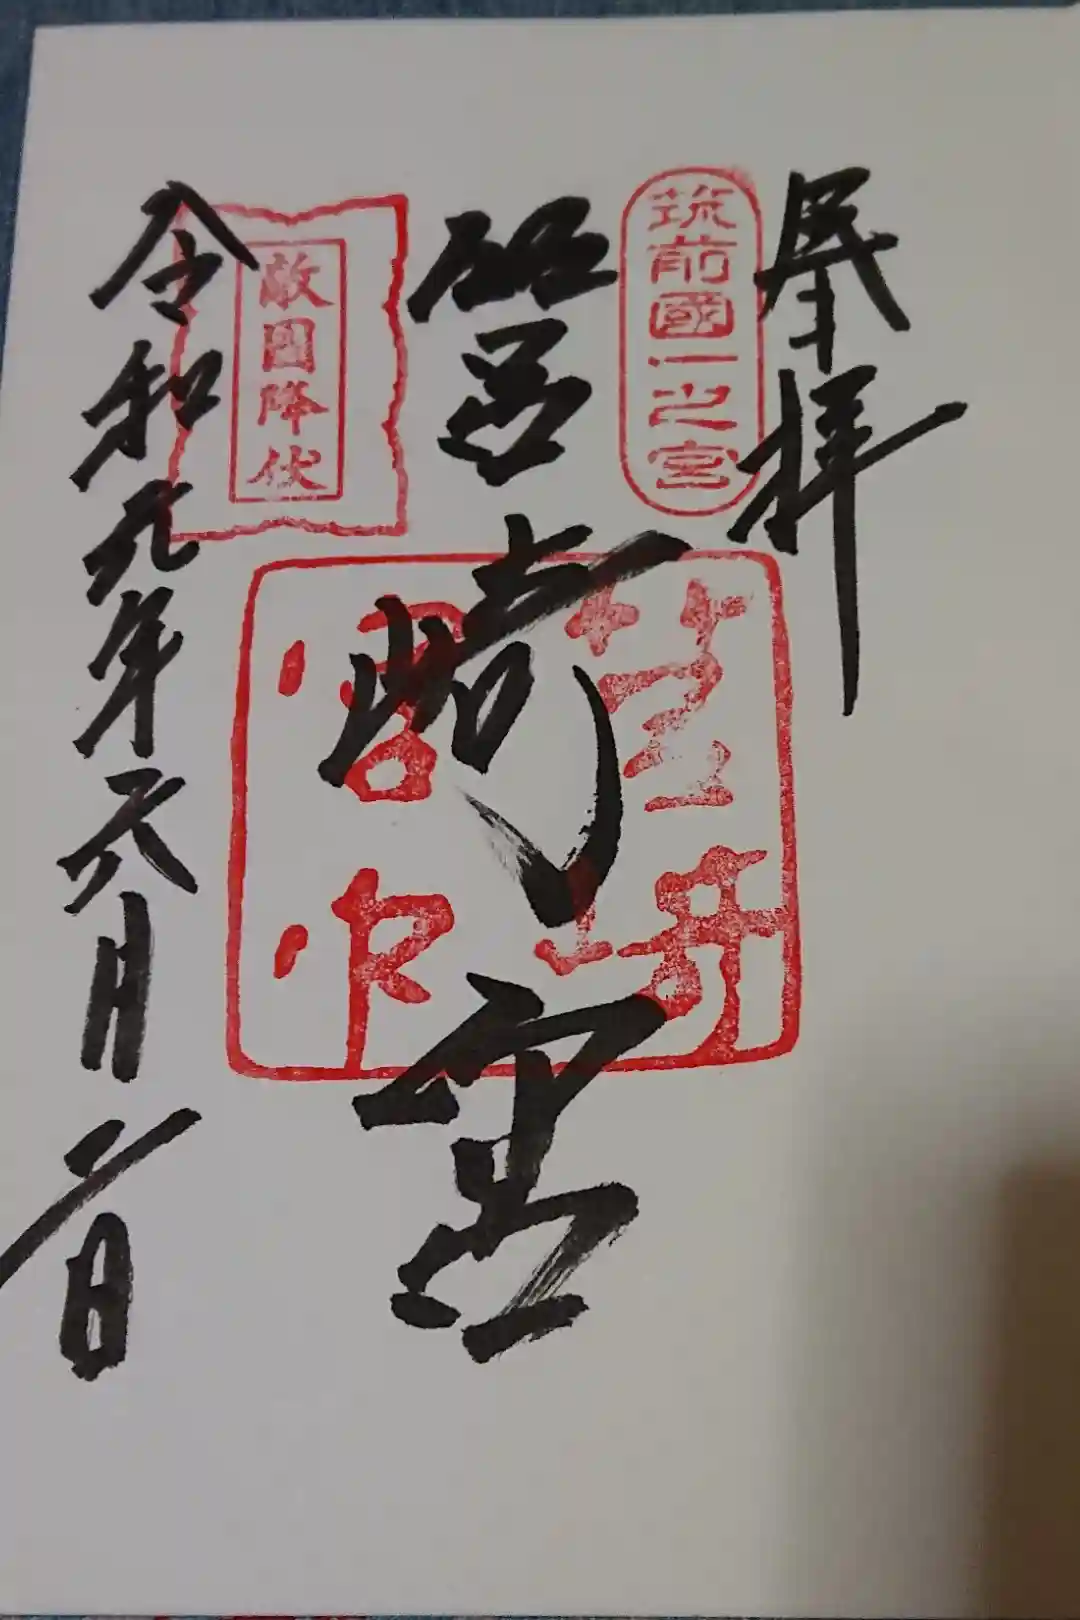 奉拝
筑前國一之宮
筥崎宮
筥崎宮印
敵國降伏
令和元年六月二日